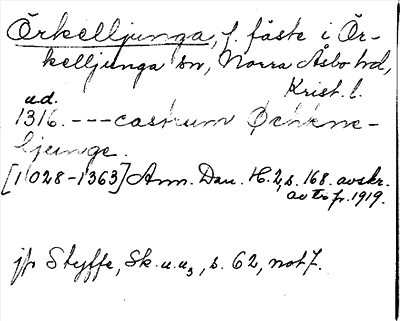 Örkelljunga, f. fäste i Ör-
kelljunga sn, Norra Åsbo hd,
Krist. l.
u.d.
1316. --- castrum Ørkne-
ljunge.
[1028-1363] Ann. Dan. H. 2, s. 168. avskr.
av 1919.
jfr Styffe, Sk. u. u3, s. 62, not 7.